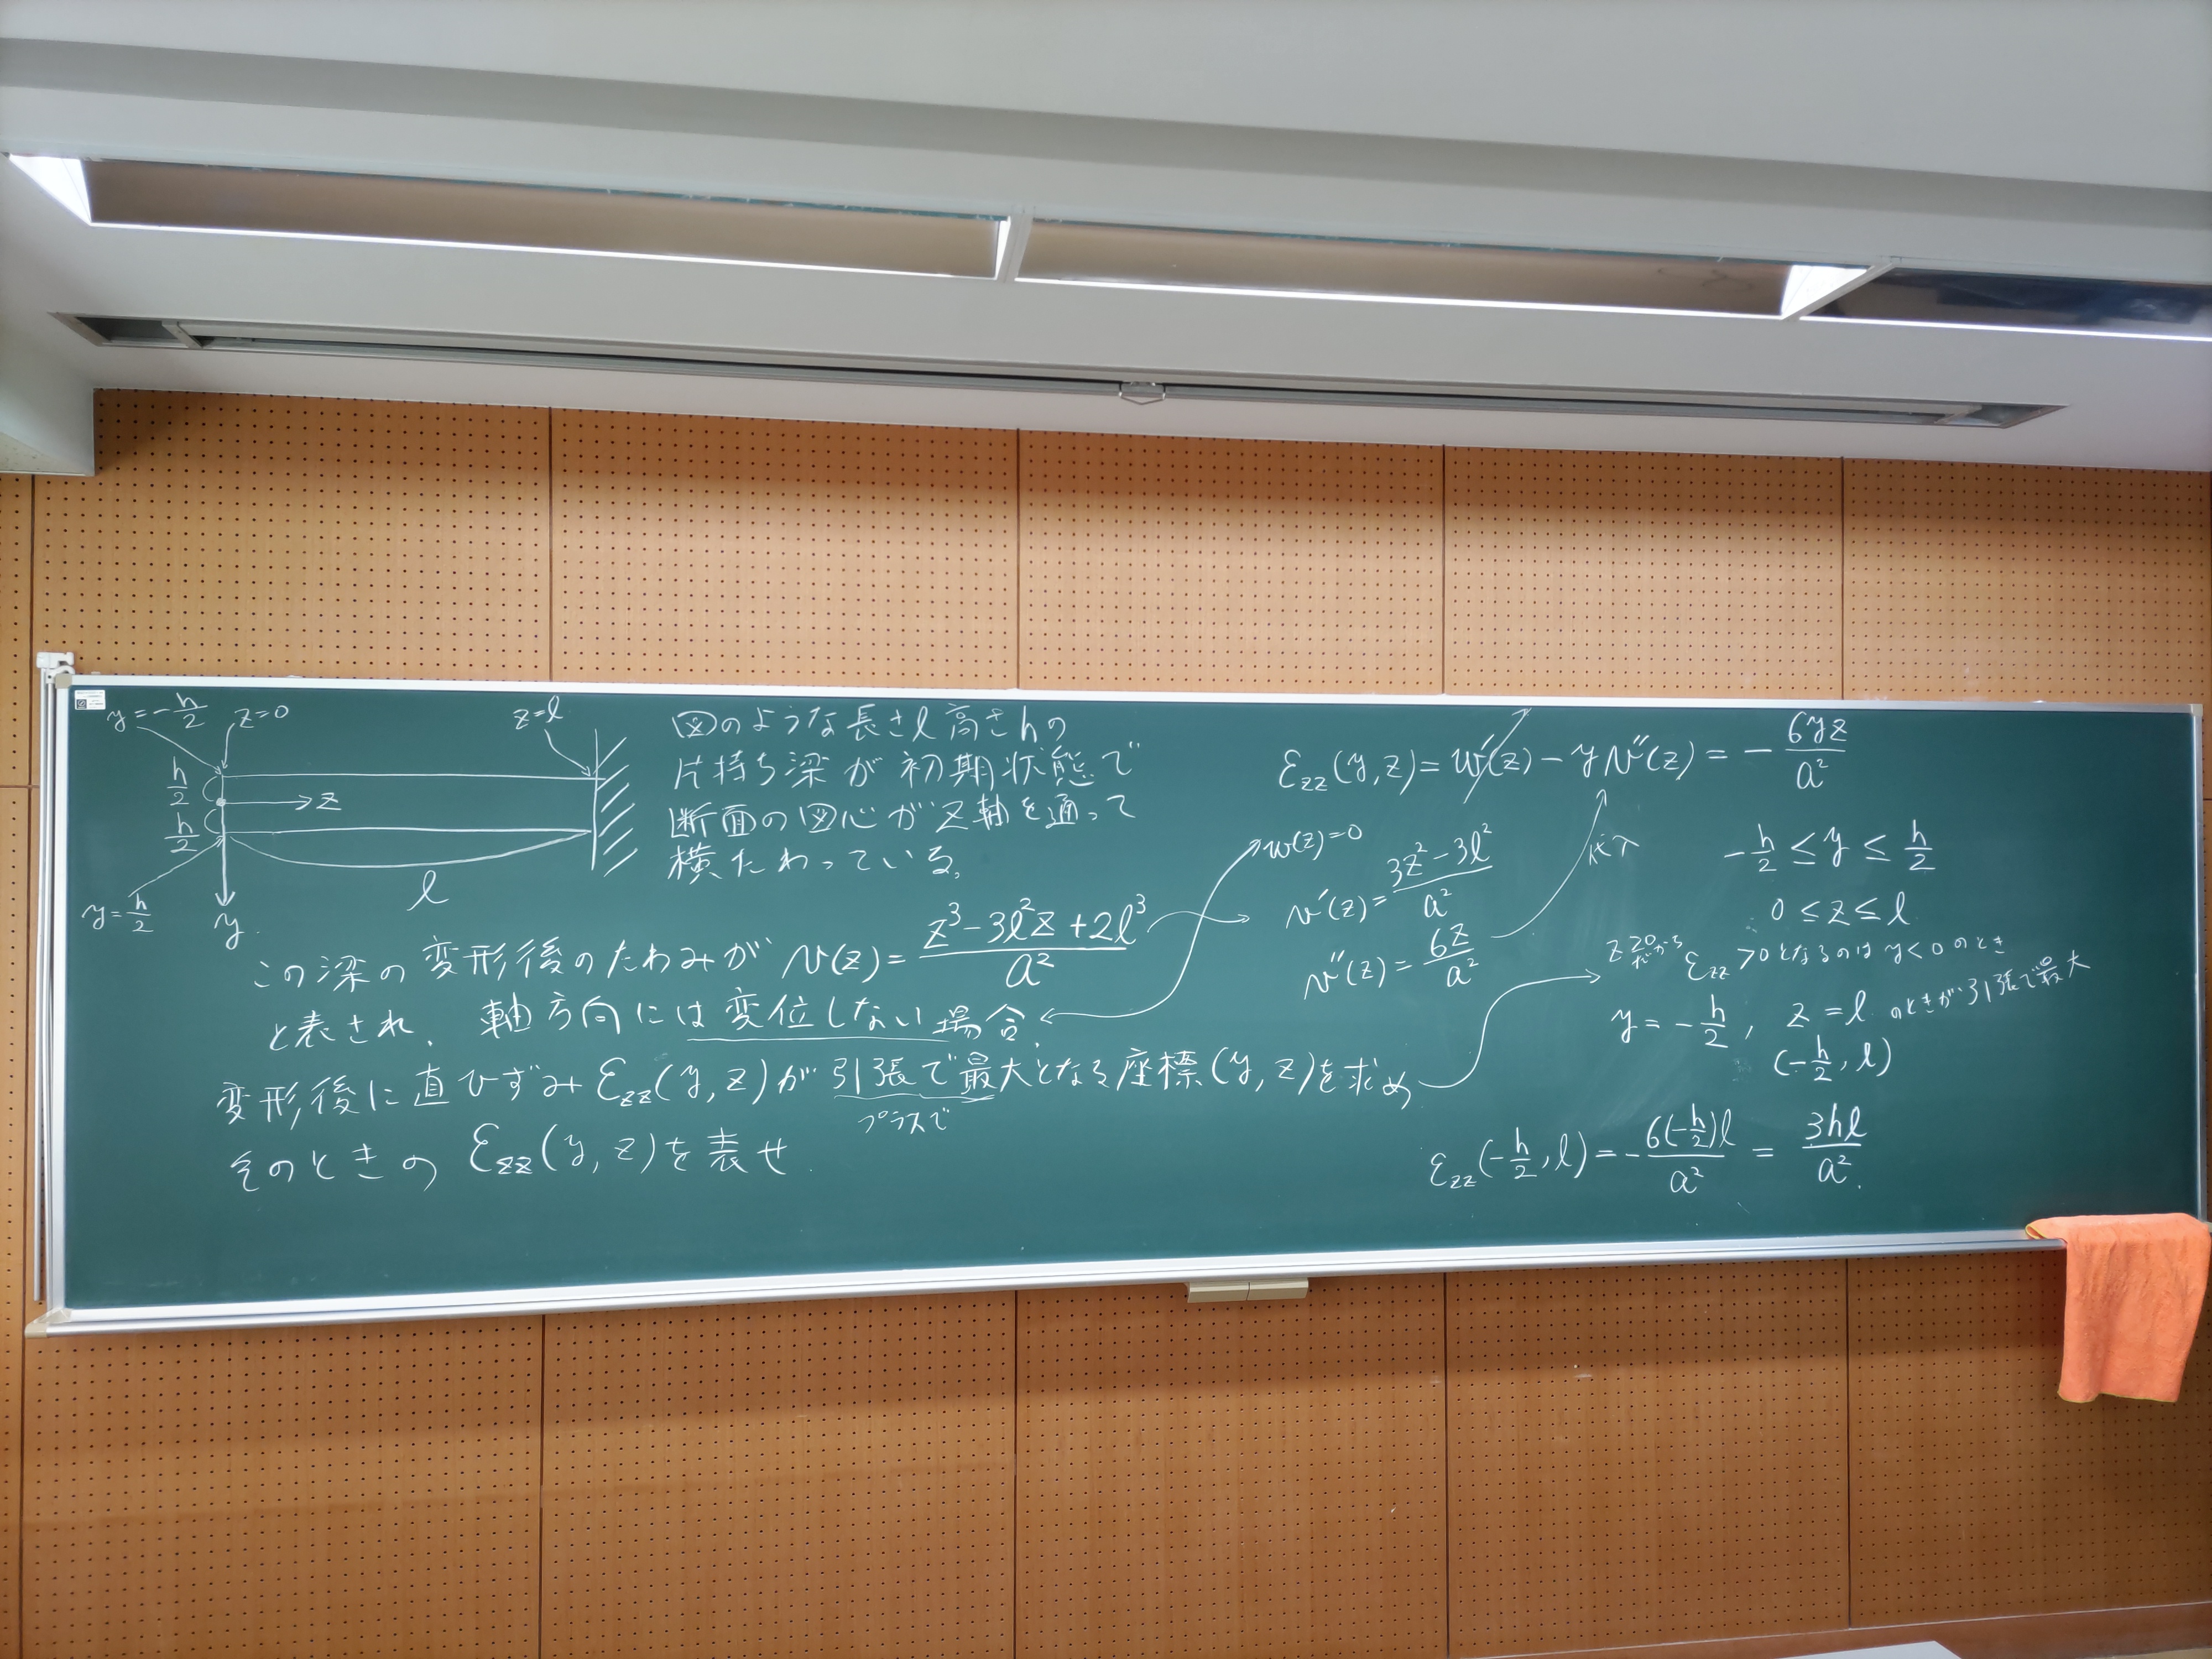 y=-h/2
z=0
z=l
h/2
z
h/2
y=h/2
y
l
図のような長さl高さhの
片持ち梁が初期状態で
断面の図心がz軸を通って
横たわっている。
この梁の変形後のたわみが v(z)=(z³-3l²z+2l³)/a²
と表され、軸方向には変位しない場合、
変形後に直ひずみ εzz(y,z)が引張で最大となる座標(y,z)を求め
プラスで
そのときの εzz(y,z)を表せ.
εzz(y,z)=w'(z)-yv''(z)=-6yz/a²
w(z)=0
v'(z)=(3z²-3l²)/a²
代入
v''(z)=6z/a²
-h/2≤y≤h/2
0≤z≤l
z≧0だから εzz>0となるのはy<0のとき
y=-h/2, z=l のときが引張で最大
(-h/2,l)
εzz(-h/2,l)=-6(-h/2)l/a²=3hl/a².